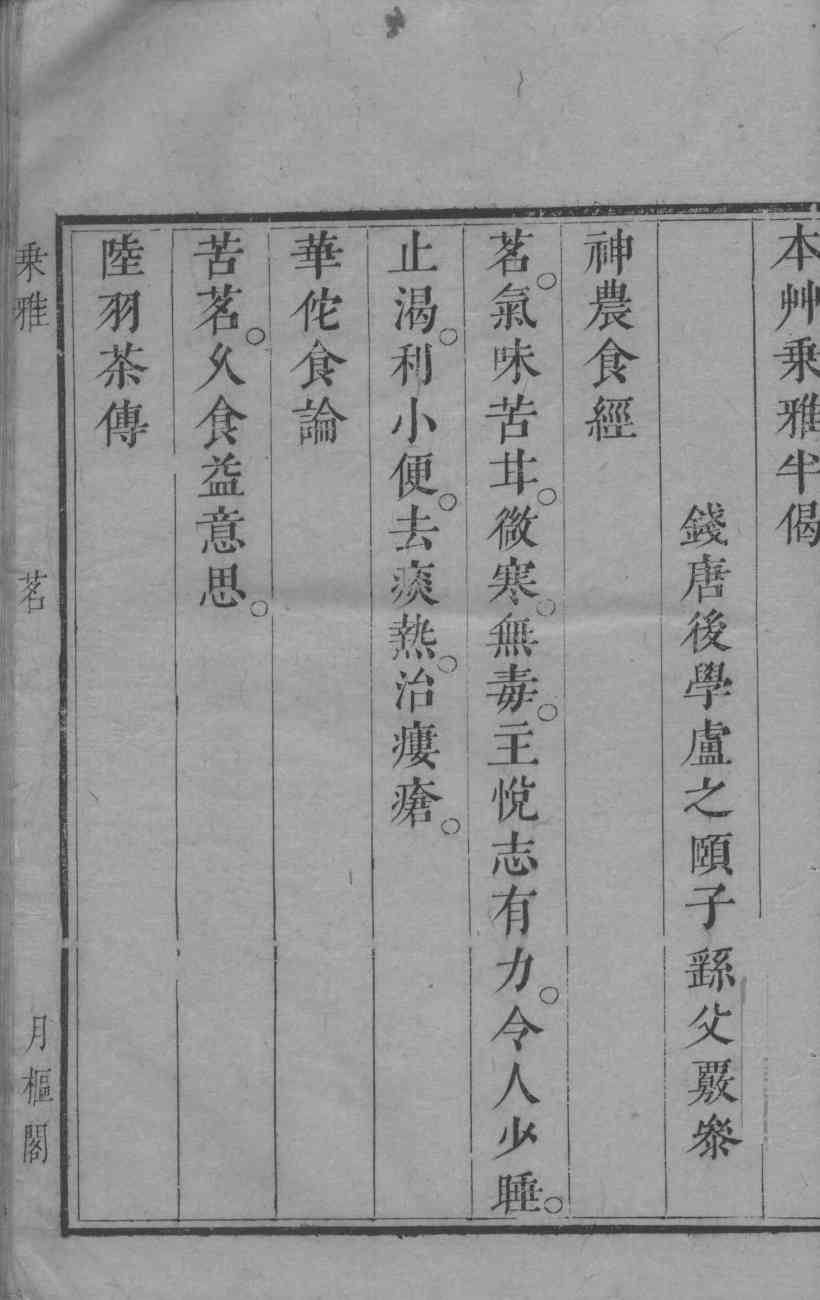 本艸乗雅半偈
錢唐後學盧之頤子繇父覈叅
神農食經
茗。氣味苦甘。微寒。無毒。主悅志有力。令人少睡。
止渴。利小便。去痰熱。治瘻瘡。
華佗食論
苦茗。久食益意思。
陸羽茶傳
乗雅 茗 月樞閣